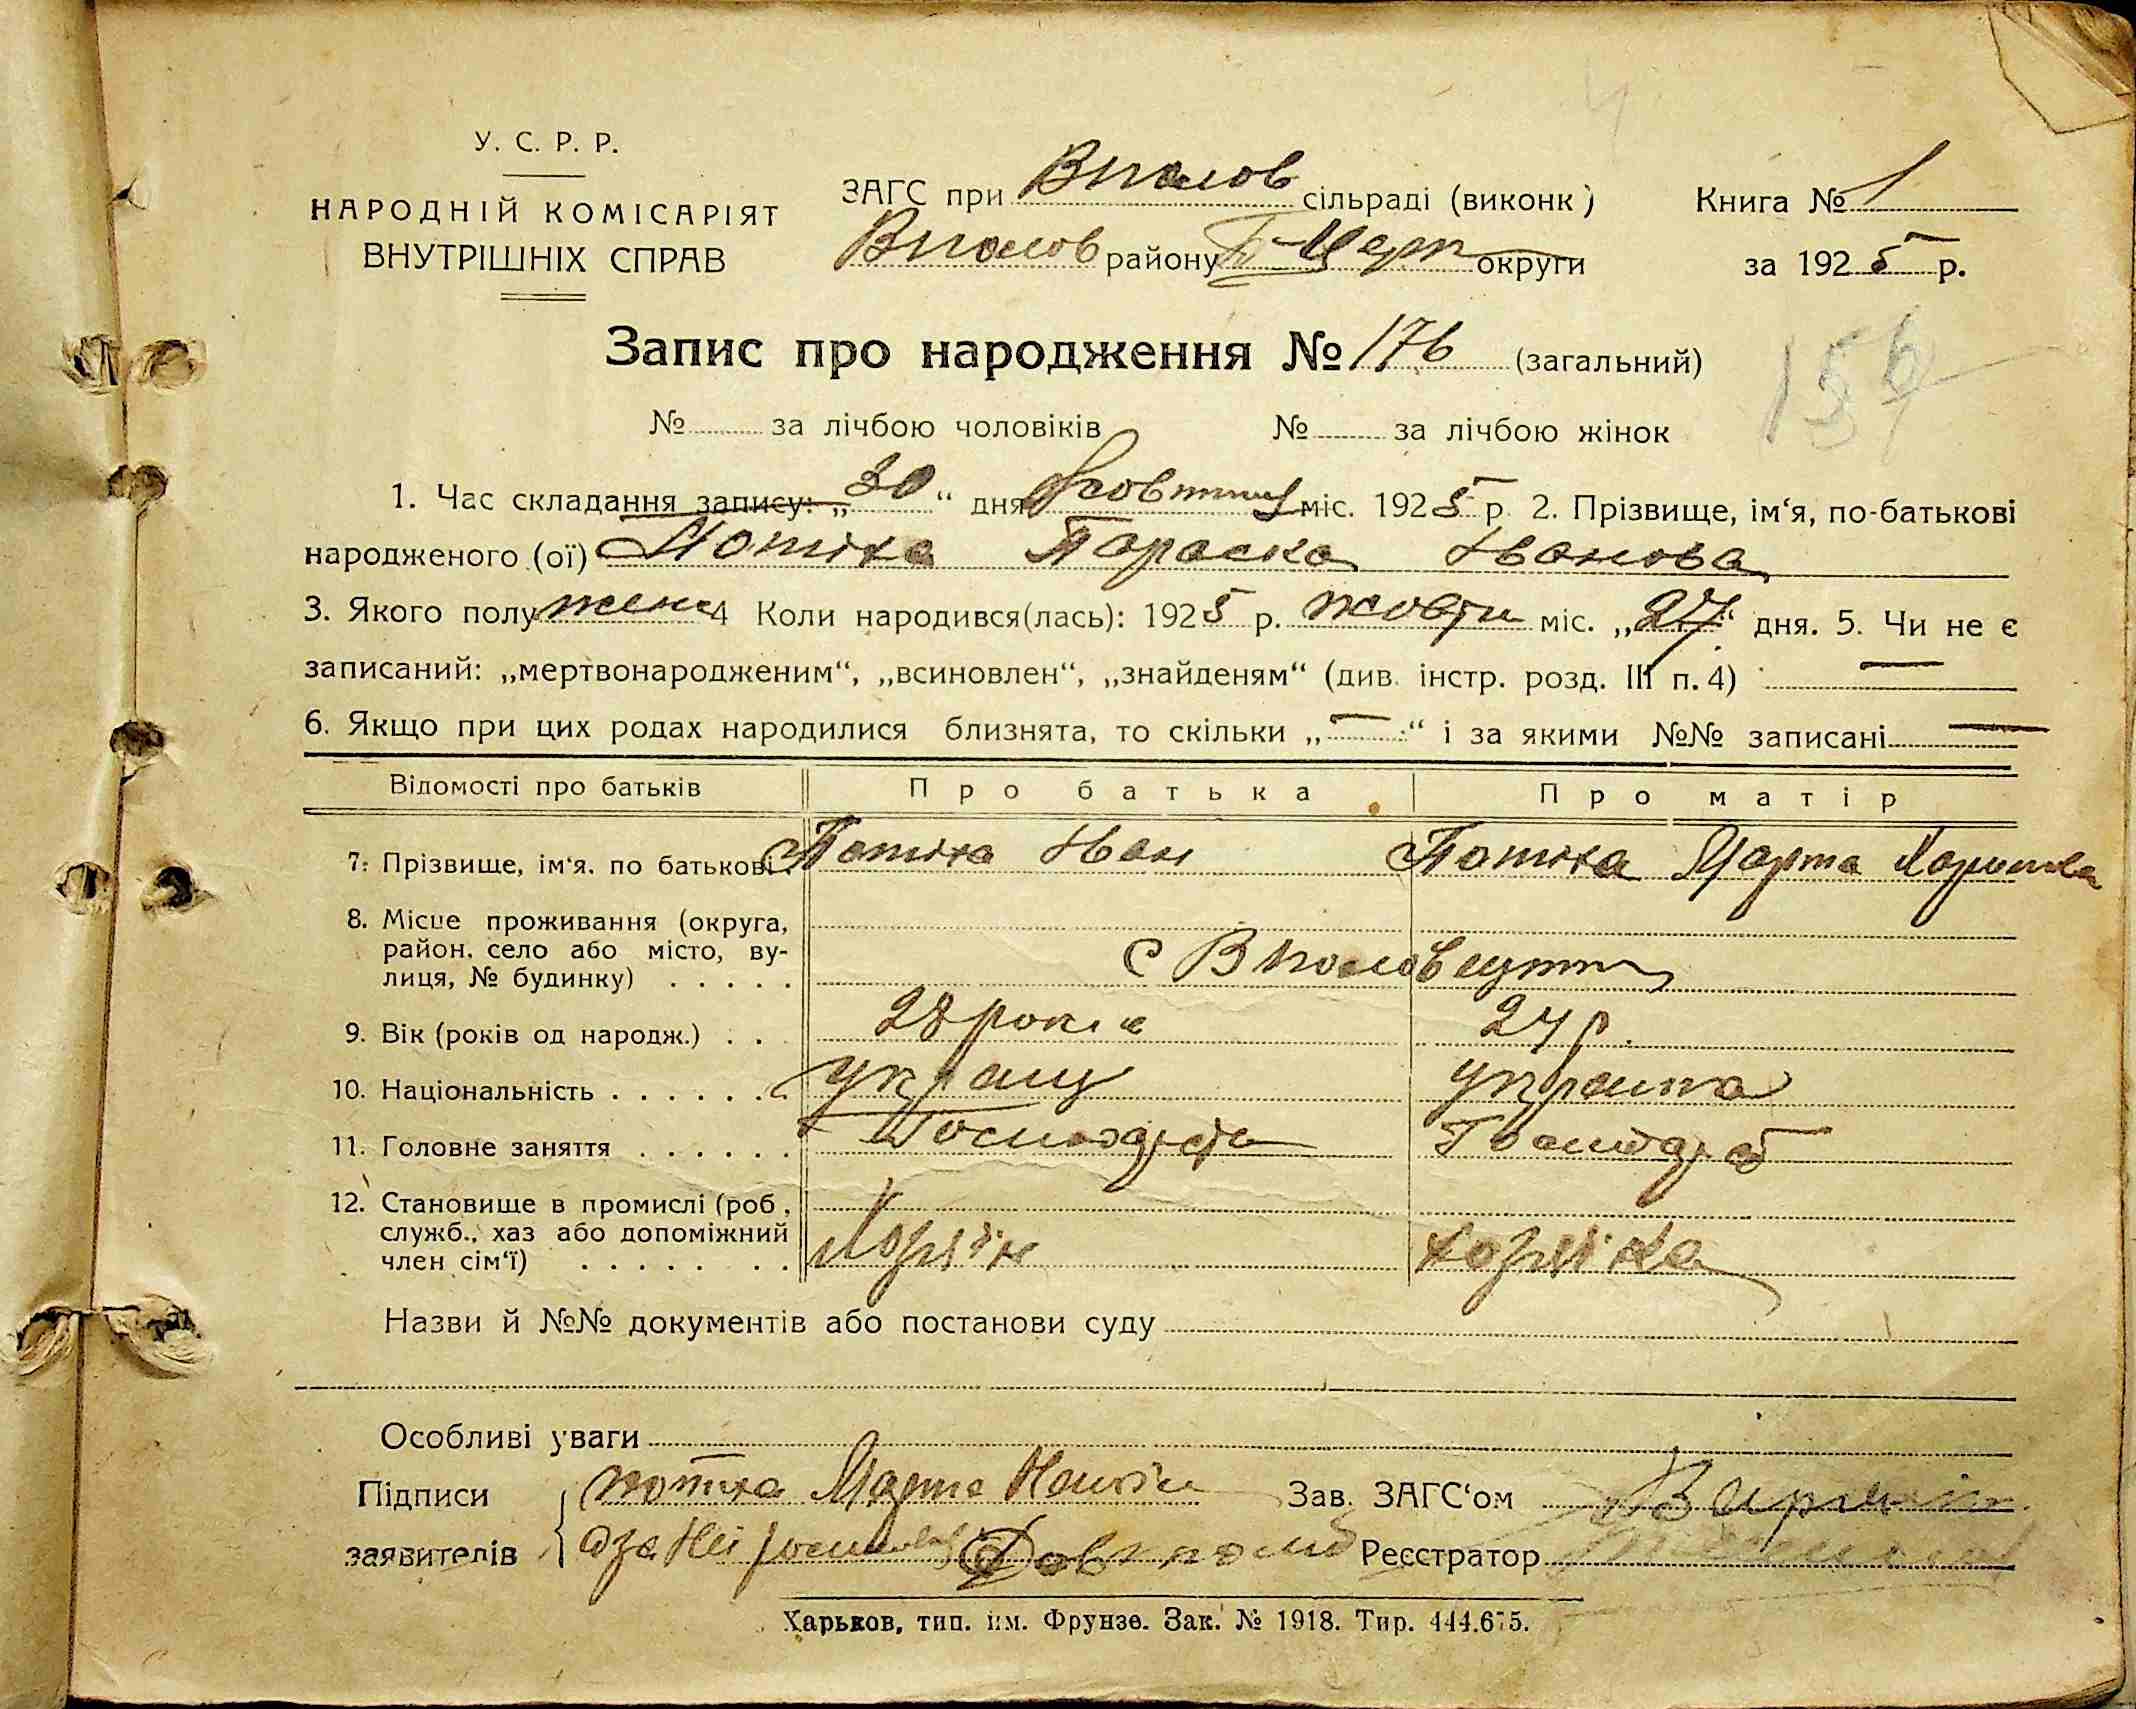 У. С. Р. Р.
НАРОДНІЙ КОМІСАРІЯТ
ВНУТРІШНІХ СПРАВ
ЗАГС при Вполов сільраді (виконк)
Вполов району Б-Церк округи
Книга № 1
за 1925 р.
Запис про народження № 176 (загальний)
№ за лічбою чоловіків № за лічбою жінок
1. Час складання запису: „30“ дня Жовтня міс. 1925 р. 2. Прізвище, ім‘я, по-батькові
народженого (ої) Потіха Параска Іванова
3. Якого полу жен 4 Коли народився(лась): 1925 р. жовтн міс. „27“ дня. 5. Чи не є
записаний: „мертвонародженим“, „всиновлен“, „знайденям“ (див. інстр. розд. III п. 4) —
6. Якщо при цих родах народилися близнята, то скільки „—“ і за якими №№ записані —
Відомості про батьків Про батька Про матір
7. Прізвище, ім‘я. по батькові. Потіха Іван Потіха Марта
8. Місце проживання (округа,
район. село або місто, ву-
лиця, № будинку) . . . . . с Вполовецьк
9. Вік (років од народж.) . . 28 років 24 р.
10. Національність . . . . . . українц українка
11. Головне заняття . . . . . . Господарств Господарст
12. Становище в промислі (роб.,
служб., хаз або допоміжний
член сім‘ї) . . . . . . . . Хазяїн хазяїка
Назви й №№ документів або постанови суду
Особливі уваги
Підписи
заявителів
потіха Марта
а за неї
Зав. ЗАГС‘ом
Реєстратор
Харьков, тип. им. Фрунзе. Зак. № 1918. Тир. 444.675.